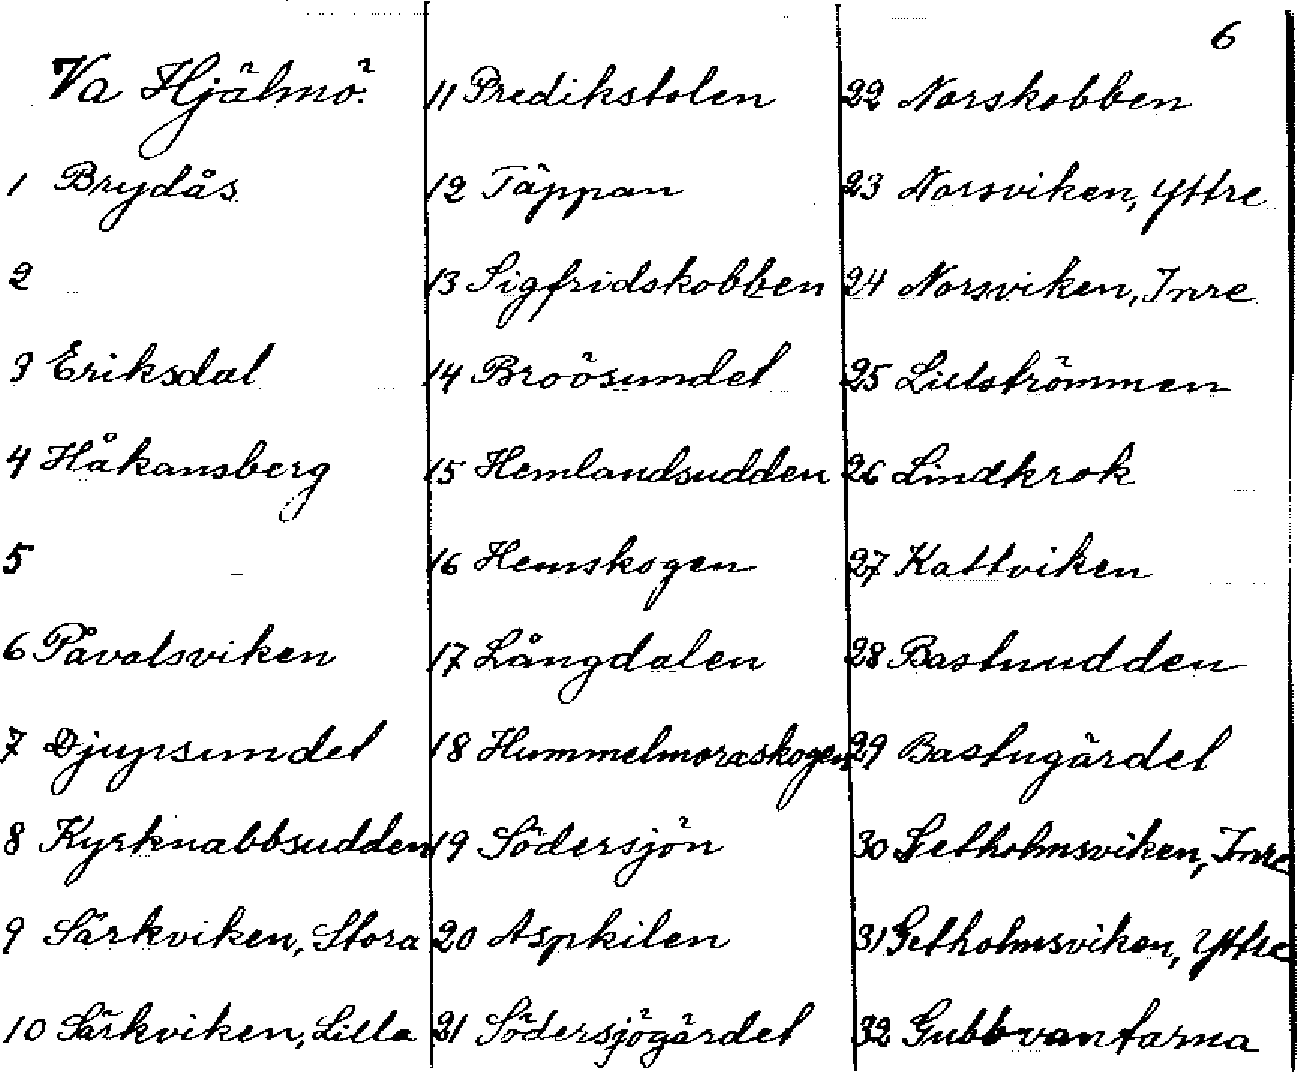 6
Va Hjälmö.
1 Brydås
2
3 Eriksdal
4 Håkansberg
5
6 Påvalsviken
7 Djupsundet
8 Kyrknabbsudden
9 Särkviken, Stora
10 Särkviken, Lilla
11 Predikstolen
12 Täppan
13 Sigfridskobben
14 Broösundet
15 Hemlandsudden
16 Hemskogen
17 Långdalen
18 Hummelmoraskogen
19 Södersjön
20 Aspkilen
21 Södersjögärdet
22 Norskobben
23 Norsviken, Yttre
24 Norsviken, Inre
25 Lillströmmen
26 Lindkrok
27 Kattviken
28 Bastuudden
29 Bastugärdet
30 Getholmsviken, Inre
31 Getholmsviken, Yttre
32 Gubbvantarna